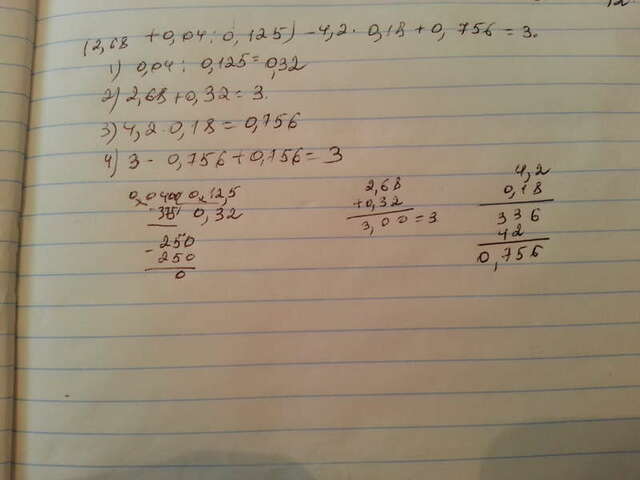 (2,68 + 0,04 : 0,125) - 4,2 · 0,18 + 0,756 = 3.
1) 0,04 : 0,125 = 0,32
2) 2,68 + 0,32 = 3.
3) 4,2 · 0,18 = 0,756
4) 3 - 0,756 + 0,756 = 3
0,0400 0,12,5
- 375 0,32
- 250
250
0
2,68
+0,32
3,00 = 3
4,2
0,18
336
42
0,756